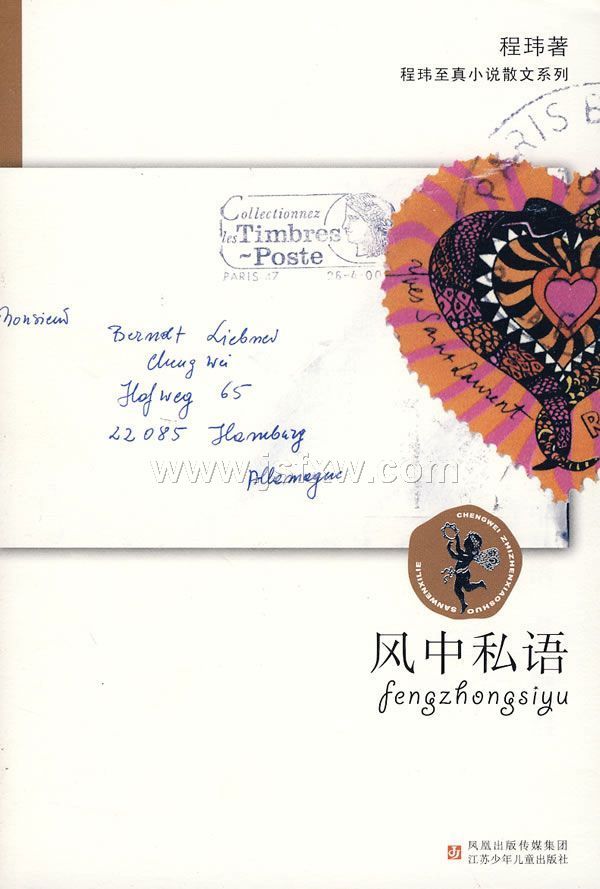 程玮著
程玮至真小说散文系列
PARIS
Collectionnez
les Timbres
~Poste
PARIS 17 26-4-00
Yves Saint Laurent
Monsieur
Berndt Liebner
Cheng Wei
Hofweg 65
22085 Hamburg
Allemagne
www.jsfxw.com
CHENGWEI ZHIZHENXIAOSHUO SANWENXILIE
风中私语
fengzhongsiyu
凤凰出版传媒集团
江苏少年儿童出版社